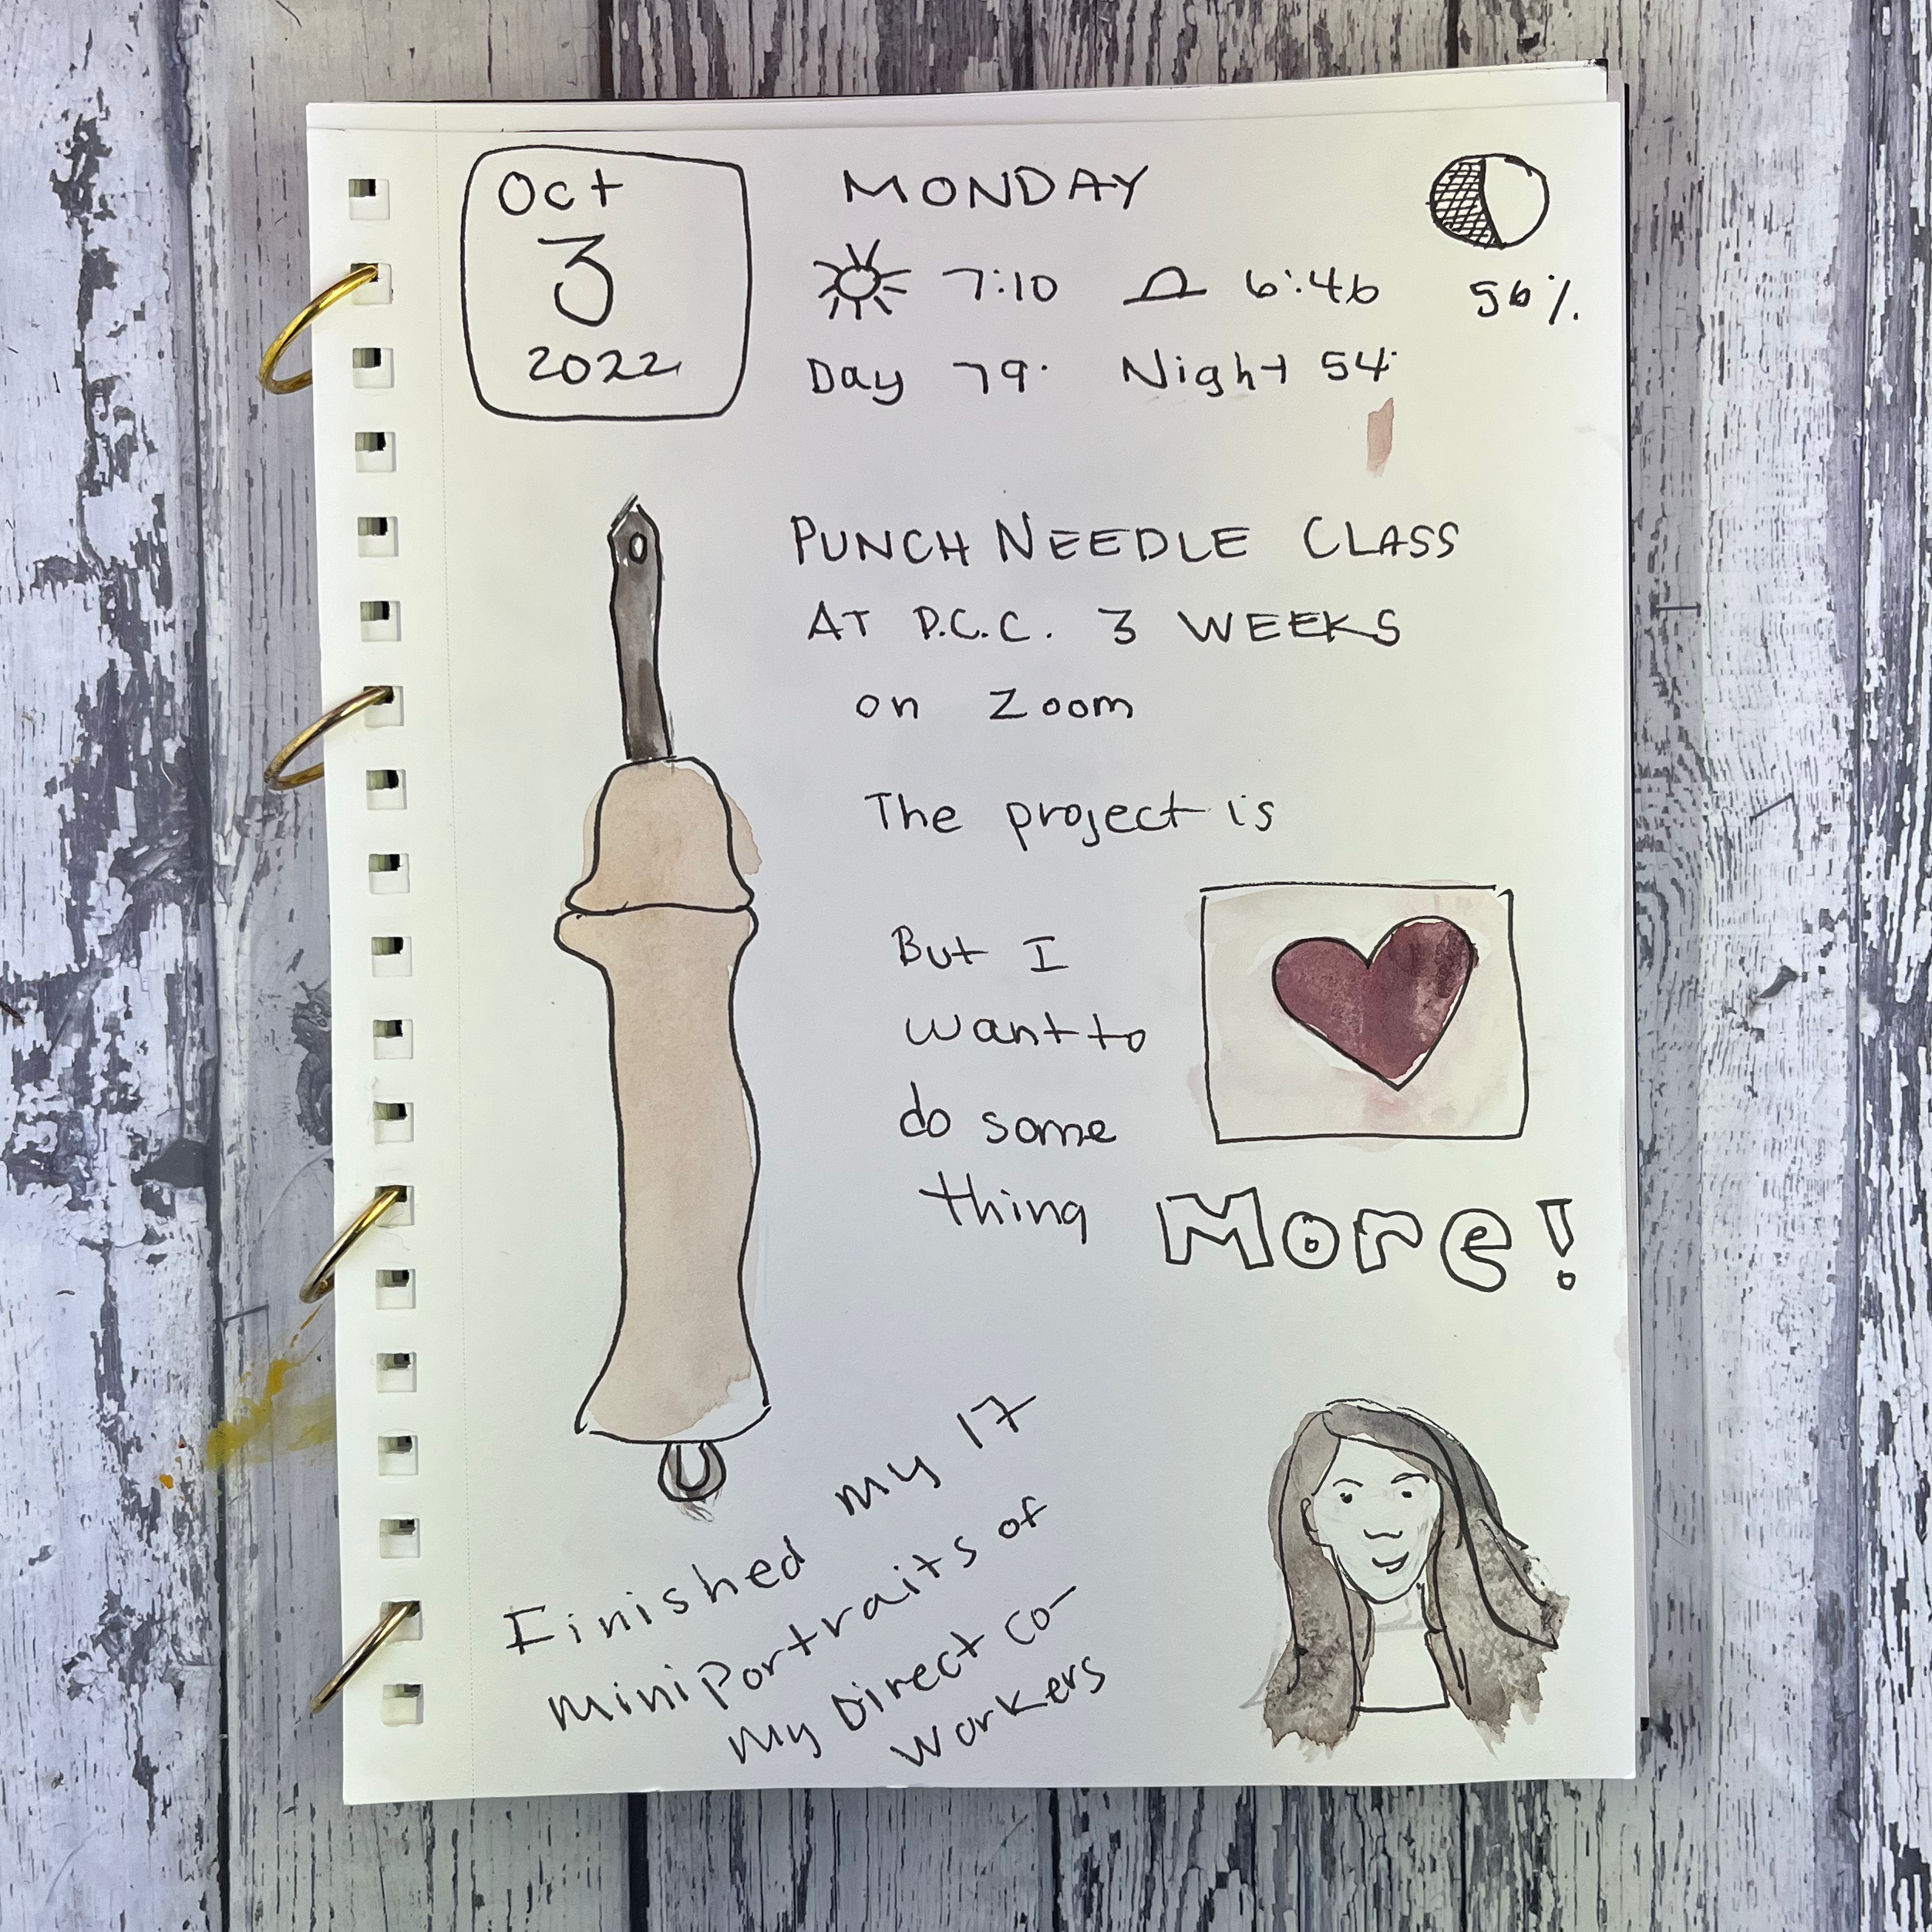 Oct
3
2022
MONDAY
7:10 6:46
56%.
Day 79° Night 54°
PUNCH NEEDLE CLASS
AT P.C.C. 3 WEEKS
on Zoom
The project is
But I
want to
do some
thing MORe!
Finished my 17
mini Portraits of
my Direct co-
workers